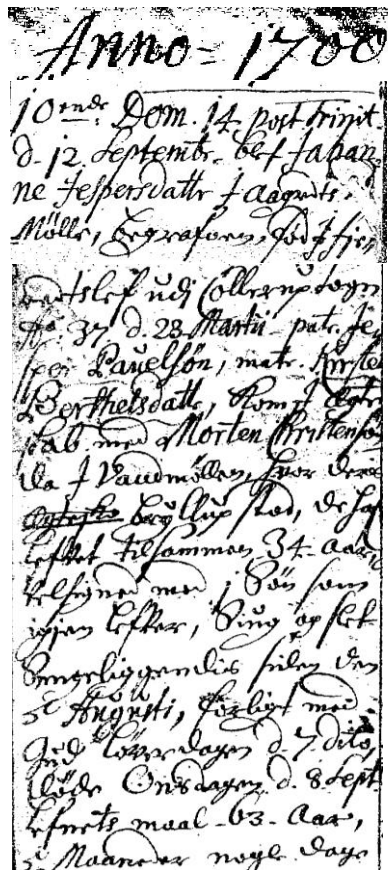 Anno - 1700
10ende Dom. 14 post trinit
d. 12 Septembr. blef Johan-
ne Jespersdattr J Aagaards
Mølle, begrafven, fød J Hjer-
metslef udi Collerup sogn
Ao. 37 d. 28 Martii patr. Je-
sper Pauelsøn, matr. Kirsten
Berthelsdattr, kom J Egte-
skab med Morten Christensøn
da J Vandmøllen, hvor deres
bryllup stod, de haf
lefvet tilsammen 34 Aar,
velsignet med j Søn som
igjen lefver, Siug og slet
Sengeliggendis siden den
5 Augusti, forligt med
Gud løverdagen d. 7 dito,
døde Onsdagen d. 8 Sept.
lefnets maal 63 Aar,
5 Maaneder nogle dage